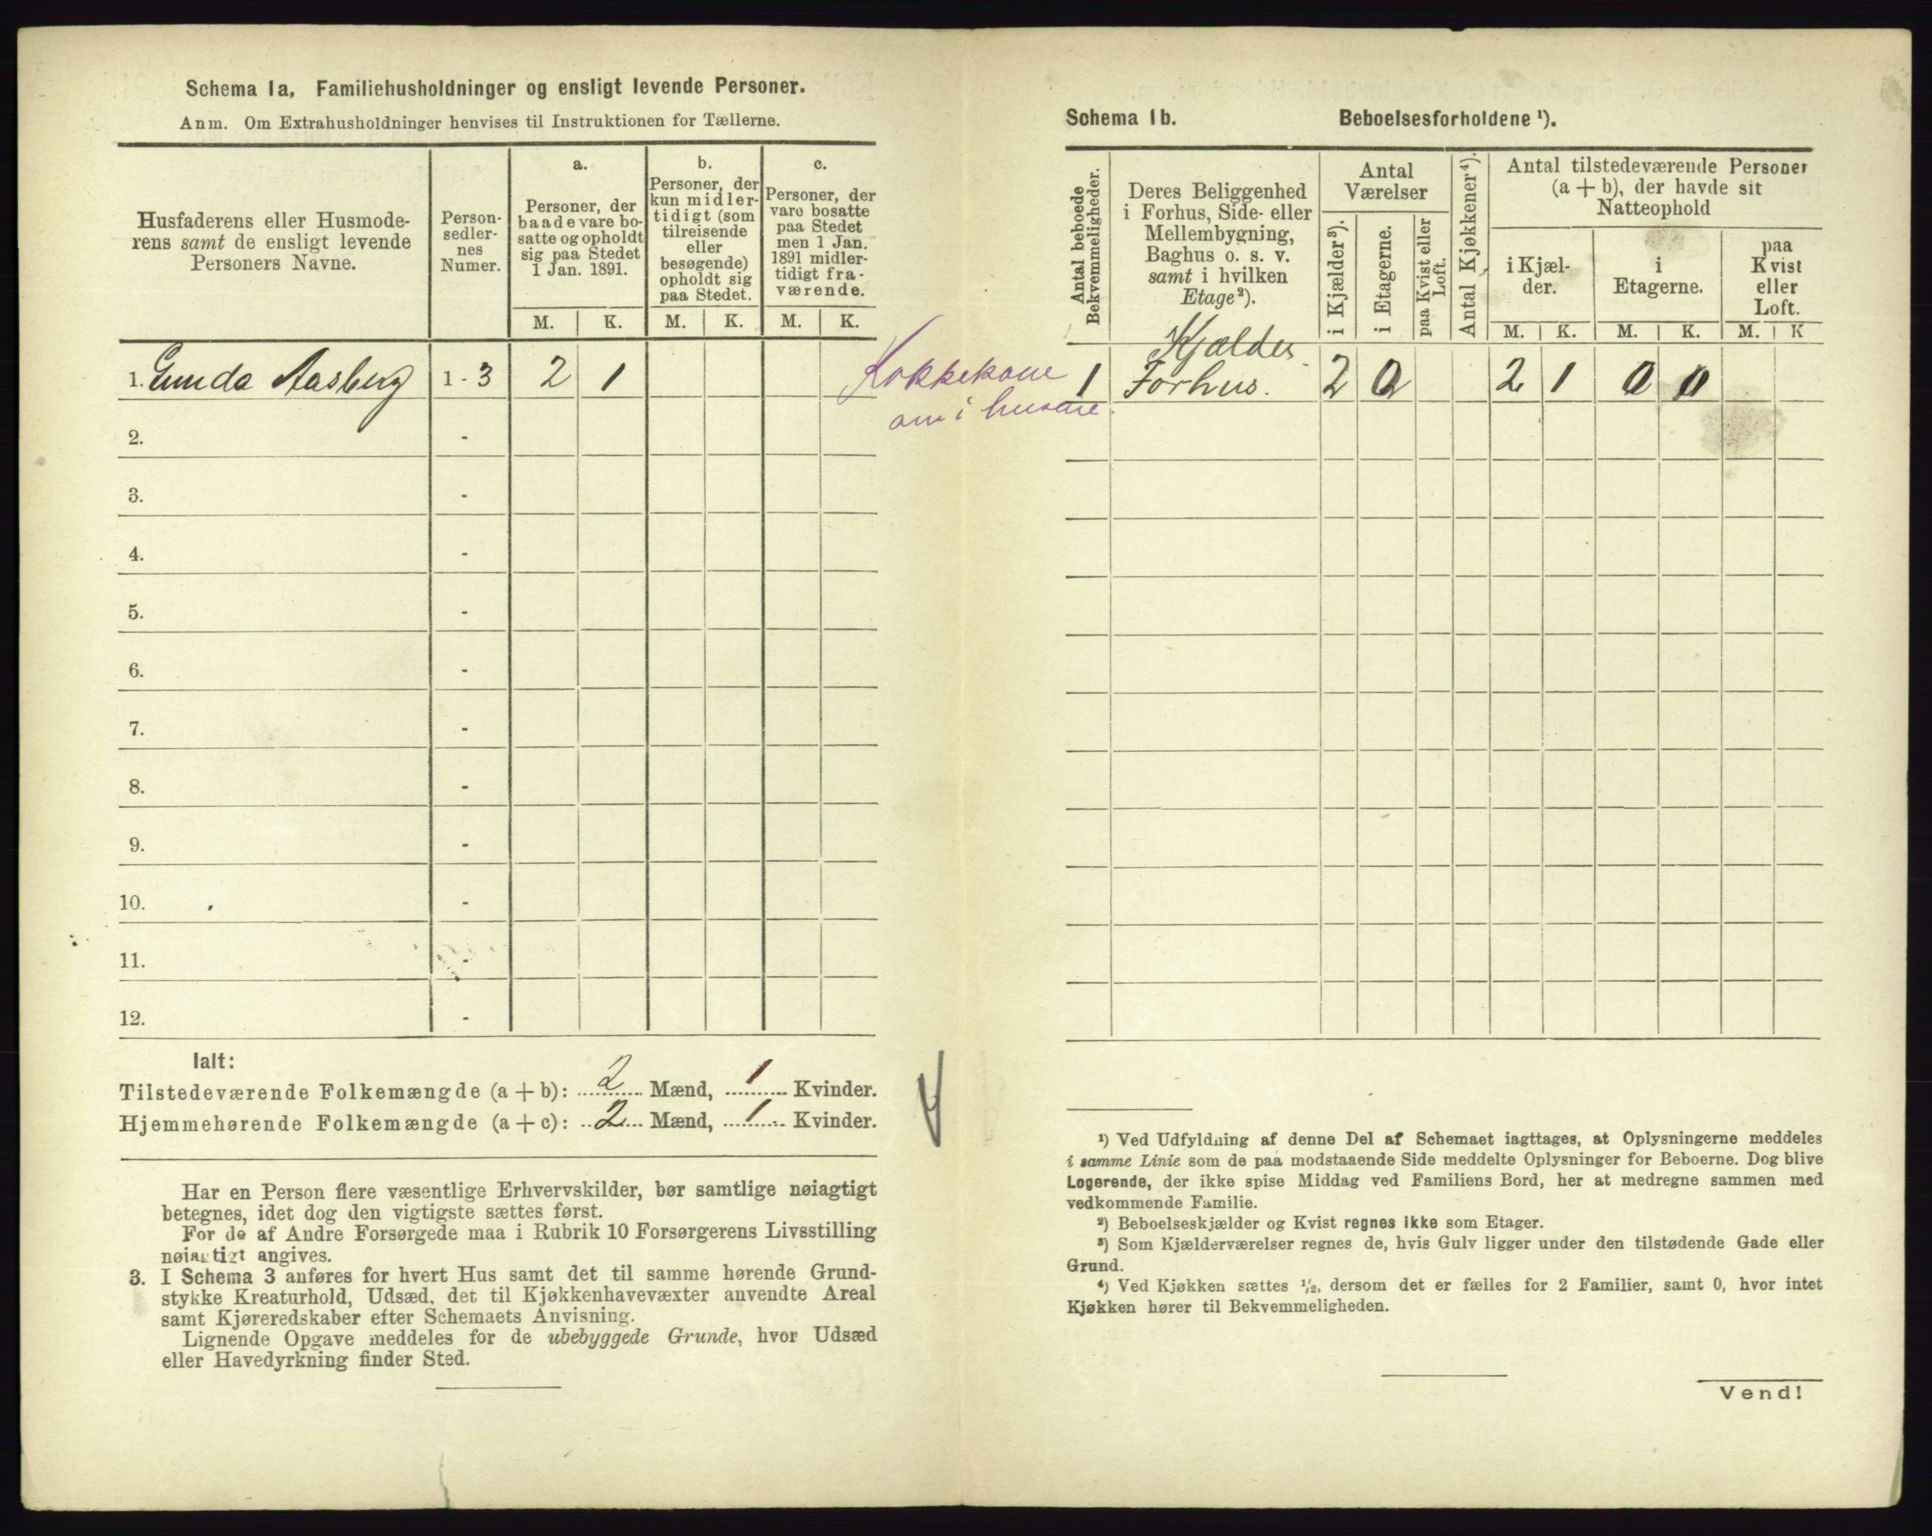 Schema 1a. Familiehusholdninger og ensligt levende Personer.
Anm. Om Extrahusholdninger henvises til Instruktionen for Tællerne.
Husfaderens eller Husmode-
rens samt de ensligt levende
Personers Navne.
Person-
sedler-
nes
Numer.
a.
Personer, der
baade vare bo-
satte og opholdt
sig paa Stedet
1 Jan. 1891.
b.
Personer, der
kun midler-
tidigt (som
tilreisende
eller
besøgende)
opholdt sig
paa Stedet.
c.
Personer, der
vare bosatte
paa Stedet
men 1 Jan.
1891 midler-
tidigt fra-
værende.
M. K. M. K. M. K.
1. Gunda Aasberg 1-3 2 1
2. -
3. -
4. -
5. -
6. -
7. -
8. -
9. -
10. -
11. -
12. -
Ialt:
Tilstedeværende Folkemængde (a + b): 2 Mænd, 1 Kvinder.
Hjemmehørende Folkemængde (a + c): 2 Mænd, 1 Kvinder.
Har en Person flere væsentlige Erhvervskilder, bør samtlige nøiagtigt
betegnes, idet dog den vigtigste sættes først.
For de af Andre Forsørgede maa i Rubrik 10 Forsørgerens Livsstilling
nøiagtigt angives.
3. I Schema 3 anføres for hvert Hus samt det til samme hørende Grund-
stykke Kreaturhold, Udsæd, det til Kjøkkenhavevæxter anvendte Areal
samt Kjøreredskaber efter Schemaets Anvisning.
Lignende Opgave meddeles for de ubebyggede Grunde, hvor Udsæd
eller Havedyrkning finder Sted.
Kokkekone
om i husene.
Schema 1b. Beboelsesforholdene ¹).
Antal beboede
Bekvemmeligheder.
Deres Beliggenhed
i Forhus, Side- eller
Mellembygning,
Baghus o. s. v.
samt i hvilken
Etage²).
Antal
Værelser
i Kjælder³).
i Etagerne.
paa Kvist eller
Loft.
Antal Kjøkkener⁴).
Antal tilstedeværende Personer
(a + b), der havde sit
Natteophold
i Kjæl-
der.
i
Etagerne.
paa
Kvist
eller
Loft.
M. K. M. K. M. K
Kjælder
1 Forhus. 2 0 2 1 0 0
¹) Ved Udfyldning af denne Del af Schemaet iagttages, at Oplysningerne meddeles
i samme Linie som de paa modstaaende Side meddelte Oplysninger for Beboerne. Dog blive
Logerende, der ikke spise Middag ved Familiens Bord, her at medregne sammen med
vedkommende Familie.
²) Beboelseskjælder og Kvist regnes ikke som Etager.
³) Som Kjælderværelser regnes de, hvis Gulv ligger under den tilstødende Gade eller
Grund.
⁴) Ved Kjøkken sættes ½, dersom det er fælles for 2 Familier, samt 0, hvor intet
Kjøkken hører til Bekvemmeligheden.
Vend!